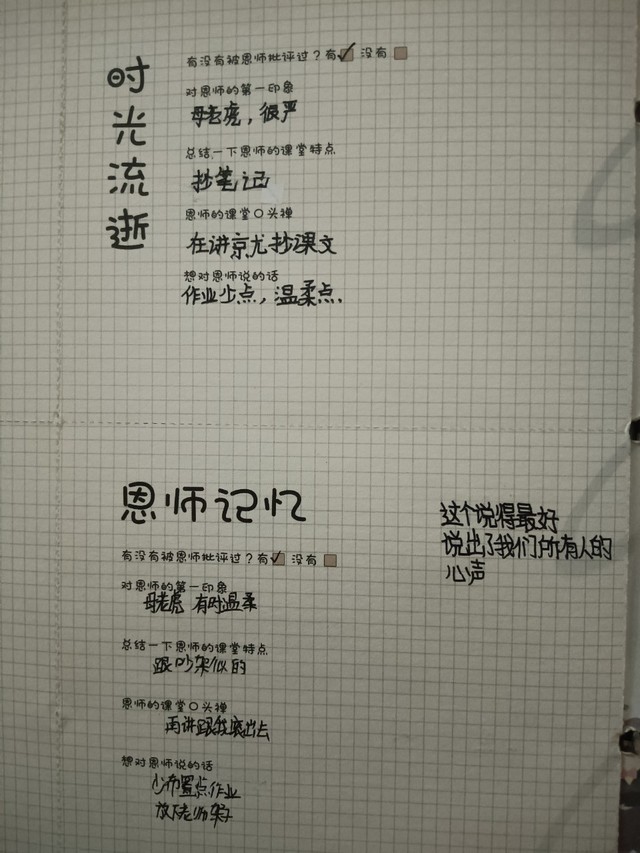 时光流逝
有没有被恩师批评过？有 没有
对恩师的第一印象
母老虎，很严
总结一下恩师的课堂特点
抄笔记
恩师的课堂口头禅
在讲京尤抄课文
想对恩师说的话
作业少点，温柔点.
恩师记忆
有没有被恩师批评过？有 没有
对恩师的第一印象
母老虎 有时温柔
总结一下恩师的课堂特点
跟吵架似的
恩师的课堂口头禅
再讲跟我滚出去
想对恩师说的话
少布置点作业
放下老师架子
这个说得最好
说出了我们所有人的
心声